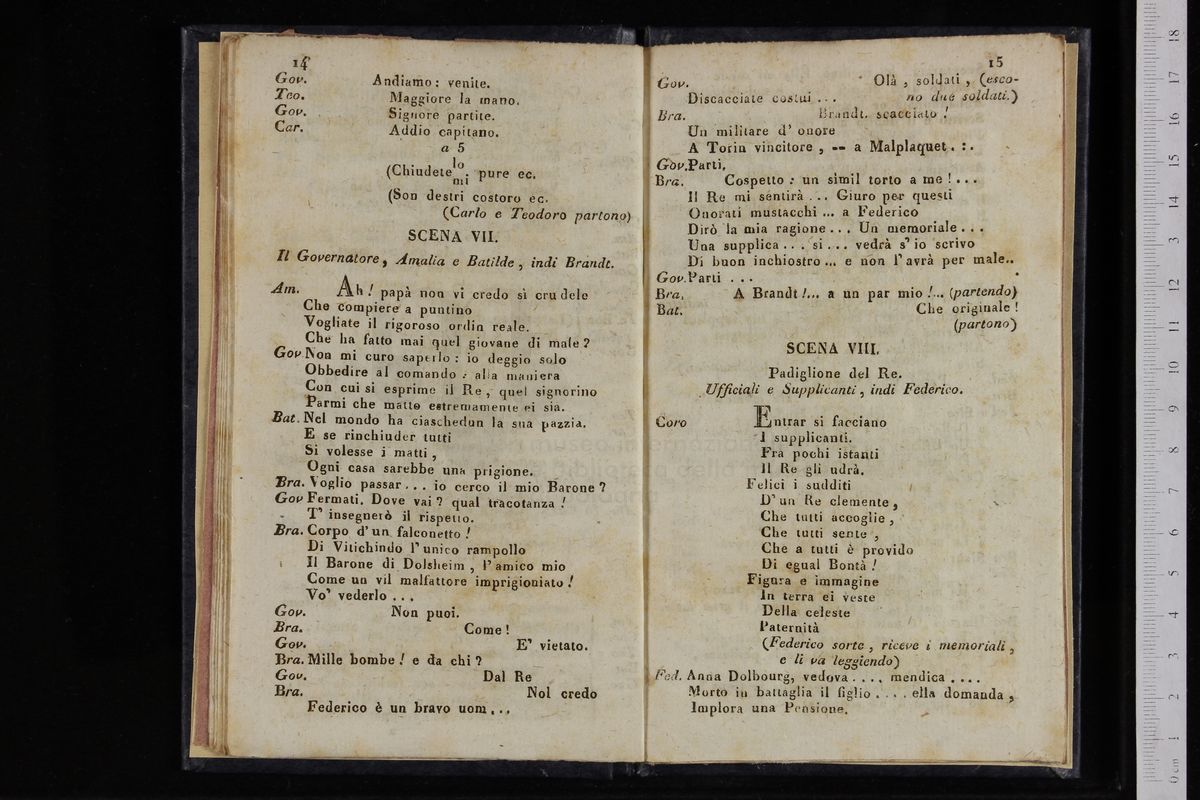 14
Gov. Andiamo: venite.
Teo. Maggiore la mano.
Gov. Signore partite.
Car. Addio capitano.
a 5
(Chiudete lo mi pure ec.
(Son destri costoro ec.
(Carlo e Teodoro partono)
SCENA VII.
Il Governatore, Amalia e Batilde, indi Brandt.
Am. Ah! papà non vi credo sì crudele
Che compiere a puntino
Vogliate il rigoroso ordin reale.
Che ha fatto mai quel giovane di male?
Gov Non mi curo saperlo: io deggio solo
Obbedire al comando: alla maniera
Con cui si esprime il Re, quel signorino
Parmi che matto estremamente ei sia.
Bat. Nel mondo ha ciaschedun la sua pazzia.
E se rinchiuder tutti
Si volesse i matti,
Ogni casa sarebbe una prigione.
Bra. Voglio passar... io cerco il mio Barone?
Gov Fermati. Dove vai? qual tracotanza!
T' insegnerò il rispetto.
Bra. Corpo d'un falconetto!
Di Vitichindo l'unico rampollo
Il Barone di Dolsheim, l'amico mio
Come un vil malfattore imprigioniato!
Vo' vederlo...
Gov. Non puoi.
Bra. Come!
Gov. E' vietato.
Bra. Mille bombe! e da chi?
Gov. Dal Re
Bra. Nol credo
Federico è un bravo uom...
15
Gov. Olà, soldati, (esco-
Discacciate costui... no due soldati.)
Bra. Brandt. scacciato!
Un militare d' onore
A Torin vincitore, -- a Malplaquet. :.
Gov. Parti.
Bra. Cospetto: un simil torto a me!...
Il Re mi sentirà... Giuro per questi
Onorati mustacchi... a Federico
Dirò la mia ragione... Un memoriale...
Una supplica... si... vedrà s' io scrivo
Di buon inchiostro... e non l'avrà per male..
Gov. Parti...
Bra. A Brandt!... a un par mio!... (partendo)
Bat. Che originale!
(partono)
SCENA VIII.
Padiglione del Re.
Ufficiali e Supplicanti, indi Federico.
Coro Entrar si facciano
I supplicanti.
Fra pochi istanti
Il Re gli udrà.
Felici i sudditi
D' un Re clemente,
Che tutti accoglie,
Che tutti sente,
Che a tutti è provido
Di egual Bontà!
Figura e immagine
In terra ei veste
Della celeste
Paternità
(Federico sorte, riceve i memoriali,
e li va leggendo)
Fed. Anna Dolbourg, vedova.... mendica....
Morto in battaglia il figlio.... ella domanda,
Implora una Pensione.
0 cm 1 2 3 4 5 6 7 8 9 10 11 12 13 14 15 16 17 18